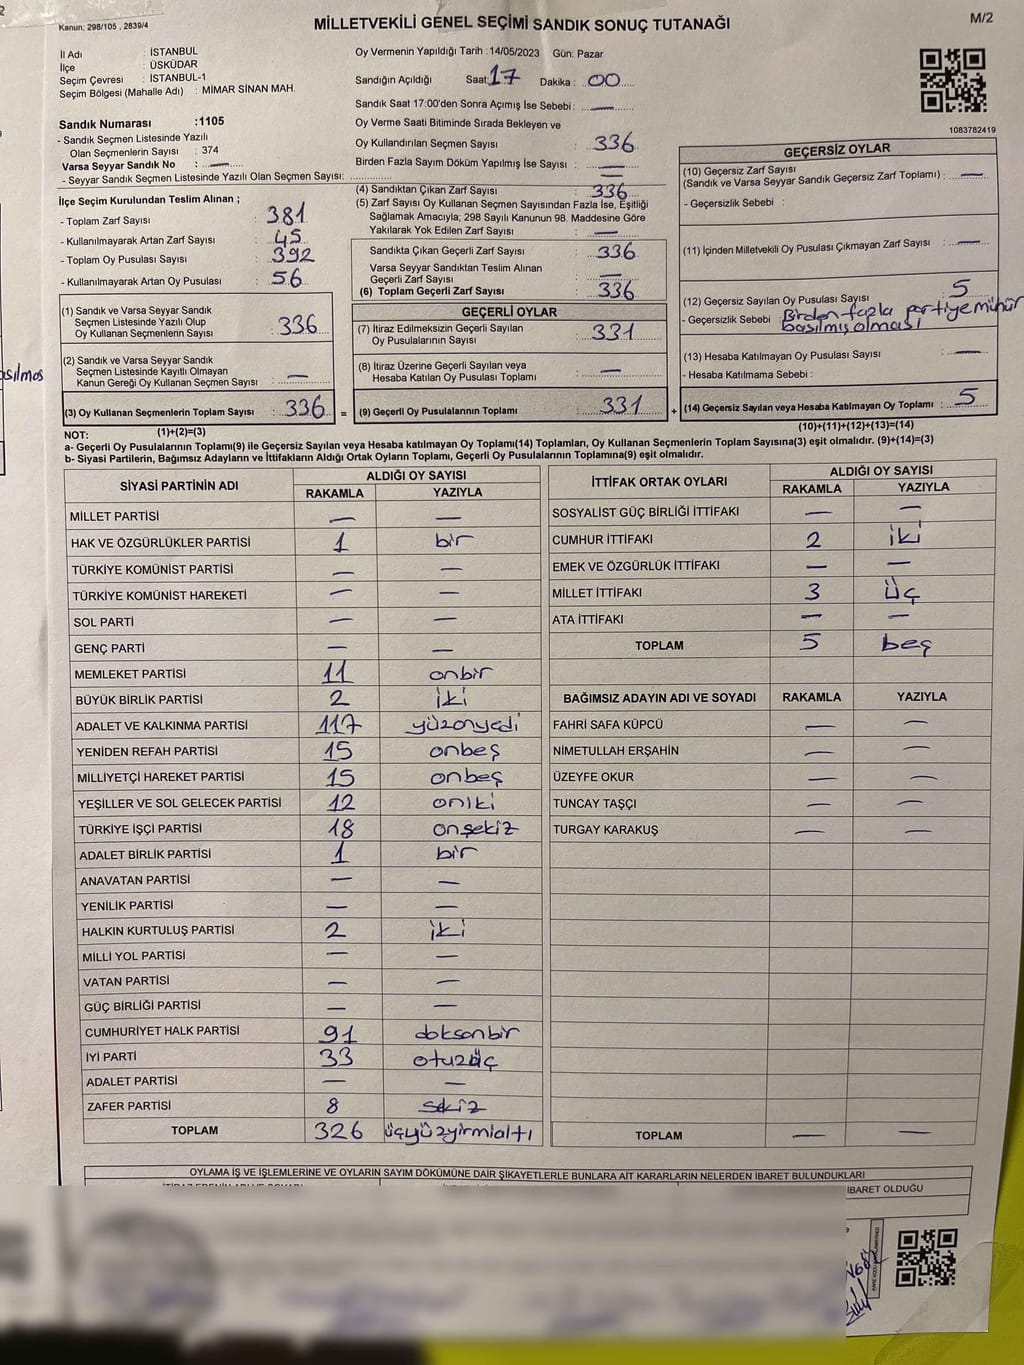 Kanun: 298/105 . 2839/4
MİLLETVEKİLİ GENEL SEÇİMİ SANDIK SONUÇ TUTANAĞI
M/2
İl Adı : İSTANBUL
İlçe : ÜSKÜDAR
Seçim Çevresi : İSTANBUL-1
Seçim Bölgesi (Mahalle Adı) : MİMAR SİNAN MAH.
Sandık Numarası :1105
- Sandık Seçmen Listesinde Yazılı
Olan Seçmenlerin Sayısı : 374
Varsa Seyyar Sandık No : —
- Seyyar Sandık Seçmen Listesinde Yazılı Olan Seçmen Sayısı:
İlçe Seçim Kurulundan Teslim Alınan ;
- Toplam Zarf Sayısı : 381
- Kullanılmayarak Artan Zarf Sayısı : 45
- Toplam Oy Pusulası Sayısı : 392
- Kullanılmayarak Artan Oy Pusulası : 56
(1) Sandık ve Varsa Seyyar Sandık
Seçmen Listesinde Yazılı Olup
Oy Kullanan Seçmenlerin Sayısı : 336
(2) Sandık ve Varsa Seyyar Sandık
Seçmen Listesinde Kayıtlı Olmayan
Kanun Gereği Oy Kullanan Seçmen Sayısı : —
(3) Oy Kullanan Seçmenlerin Toplam Sayısı : 336 =
Oy Vermenin Yapıldığı Tarih : 14/05/2023 Gün: Pazar
Sandığın Açıldığı Saat: 17 Dakika : 00
Sandık Saat 17:00'den Sonra Açımış İse Sebebi : —
Oy Verme Saati Bitiminde Sırada Bekleyen ve
Oy Kullandırılan Seçmen Sayısı : 336
Birden Fazla Sayım Döküm Yapılmış İse Sayısı : —
(4) Sandıktan Çıkan Zarf Sayısı : 336
(5) Zarf Sayısı Oy Kullanan Seçmen Sayısından Fazla İse, Eşitliği
Sağlamak Amacıyla; 298 Sayılı Kanunun 98. Maddesine Göre
Yakılarak Yok Edilen Zarf Sayısı : —
Sandıkta Çıkan Geçerli Zarf Sayısı : 336
Varsa Seyyar Sandıktan Teslim Alınan
Geçerli Zarf Sayısı : —
(6) Toplam Geçerli Zarf Sayısı : 336
GEÇERLİ OYLAR
(7) İtiraz Edilmeksizin Geçerli Sayılan
Oy Pusulalarının Sayısı : 331
(8) İtiraz Üzerine Geçerli Sayılan veya
Hesaba Katılan Oy Pusulası Toplamı : —
(9) Geçerli Oy Pusulalarının Toplamı : 331 +
1083782419
GEÇERSİZ OYLAR
(10) Geçersiz Zarf Sayısı
(Sandık ve Varsa Seyyar Sandık Geçersiz Zarf Toplamı) : —
- Geçersizlik Sebebi :
(11) İçinden Milletvekili Oy Pusulası Çıkmayan Zarf Sayısı : —
(12) Geçersiz Sayılan Oy Pusulası Sayısı : 5
- Geçersizlik Sebebi : Birden fazla partiye mühür
basılmış olması
(13) Hesaba Katılmayan Oy Pusulası Sayısı : —
- Hesaba Katılmama Sebebi :
(14) Geçersiz Sayılan veya Hesaba Katılmayan Oy Toplamı : 5
NOT: (1)+(2)=(3)
(10)+(11)+(12)+(13)=(14)
a- Geçerli Oy Pusulalarının Toplamı(9) ile Geçersiz Sayılan veya Hesaba katılmayan Oy Toplamı(14) Toplamları, Oy Kullanan Seçmenlerin Toplam Sayısına(3) eşit olmalıdır. (9)+(14)=(3)
b- Siyasi Partilerin, Bağımsız Adayların ve İttifakların Aldığı Ortak Oyların Toplamı, Geçerli Oy Pusulalarının Toplamına(9) eşit olmalıdır.
SİYASİ PARTİNİN ADI ALDIĞI OY SAYISI
RAKAMLA YAZIYLA
MİLLET PARTİSİ — —
HAK VE ÖZGÜRLÜKLER PARTİSİ 1 bir
TÜRKİYE KOMÜNİST PARTİSİ — —
TÜRKİYE KOMÜNİST HAREKETİ — —
SOL PARTİ — —
GENÇ PARTİ — —
MEMLEKET PARTİSİ 11 onbir
BÜYÜK BİRLİK PARTİSİ 2 iki
ADALET VE KALKINMA PARTİSİ 117 yüzonyedi
YENİDEN REFAH PARTİSİ 15 onbeş
MİLLİYETÇİ HAREKET PARTİSİ 15 onbeş
YEŞİLLER VE SOL GELECEK PARTİSİ 12 oniki
TÜRKİYE İŞÇİ PARTİSİ 18 onsekiz
ADALET BİRLİK PARTİSİ 1 bir
ANAVATAN PARTİSİ — —
YENİLİK PARTİSİ — —
HALKIN KURTULUŞ PARTİSİ 2 iki
MİLLİ YOL PARTİSİ — —
VATAN PARTİSİ — —
GÜÇ BİRLİĞİ PARTİSİ — —
CUMHURİYET HALK PARTİSİ 91 doksanbir
İYİ PARTİ 33 otuzüç
ADALET PARTİSİ — —
ZAFER PARTİSİ 8 sekiz
TOPLAM 326 üçyüzyirmialtı
İTTİFAK ORTAK OYLARI ALDIĞI OY SAYISI
RAKAMLA YAZIYLA
SOSYALİST GÜÇ BİRLİĞİ İTTİFAKI — —
CUMHUR İTTİFAKI 2 iki
EMEK VE ÖZGÜRLÜK İTTİFAKI — —
MİLLET İTTİFAKI 3 üç
ATA İTTİFAKI — —
TOPLAM 5 beş
BAĞIMSIZ ADAYIN ADI VE SOYADI RAKAMLA YAZIYLA
FAHRİ SAFA KÜPCÜ — —
NİMETULLAH ERŞAHİN — —
ÜZEYFE OKUR — —
TUNCAY TAŞÇI — —
TURGAY KARAKUŞ — —
TOPLAM — —
OYLAMA İŞ VE İŞLEMLERİNE VE OYLARIN SAYIM DÖKÜMÜNE DAİR ŞİKAYETLERLE BUNLARA AİT KARARLARIN NELERDEN İBARET BULUNDUKLARI
İBARET OLDUĞU